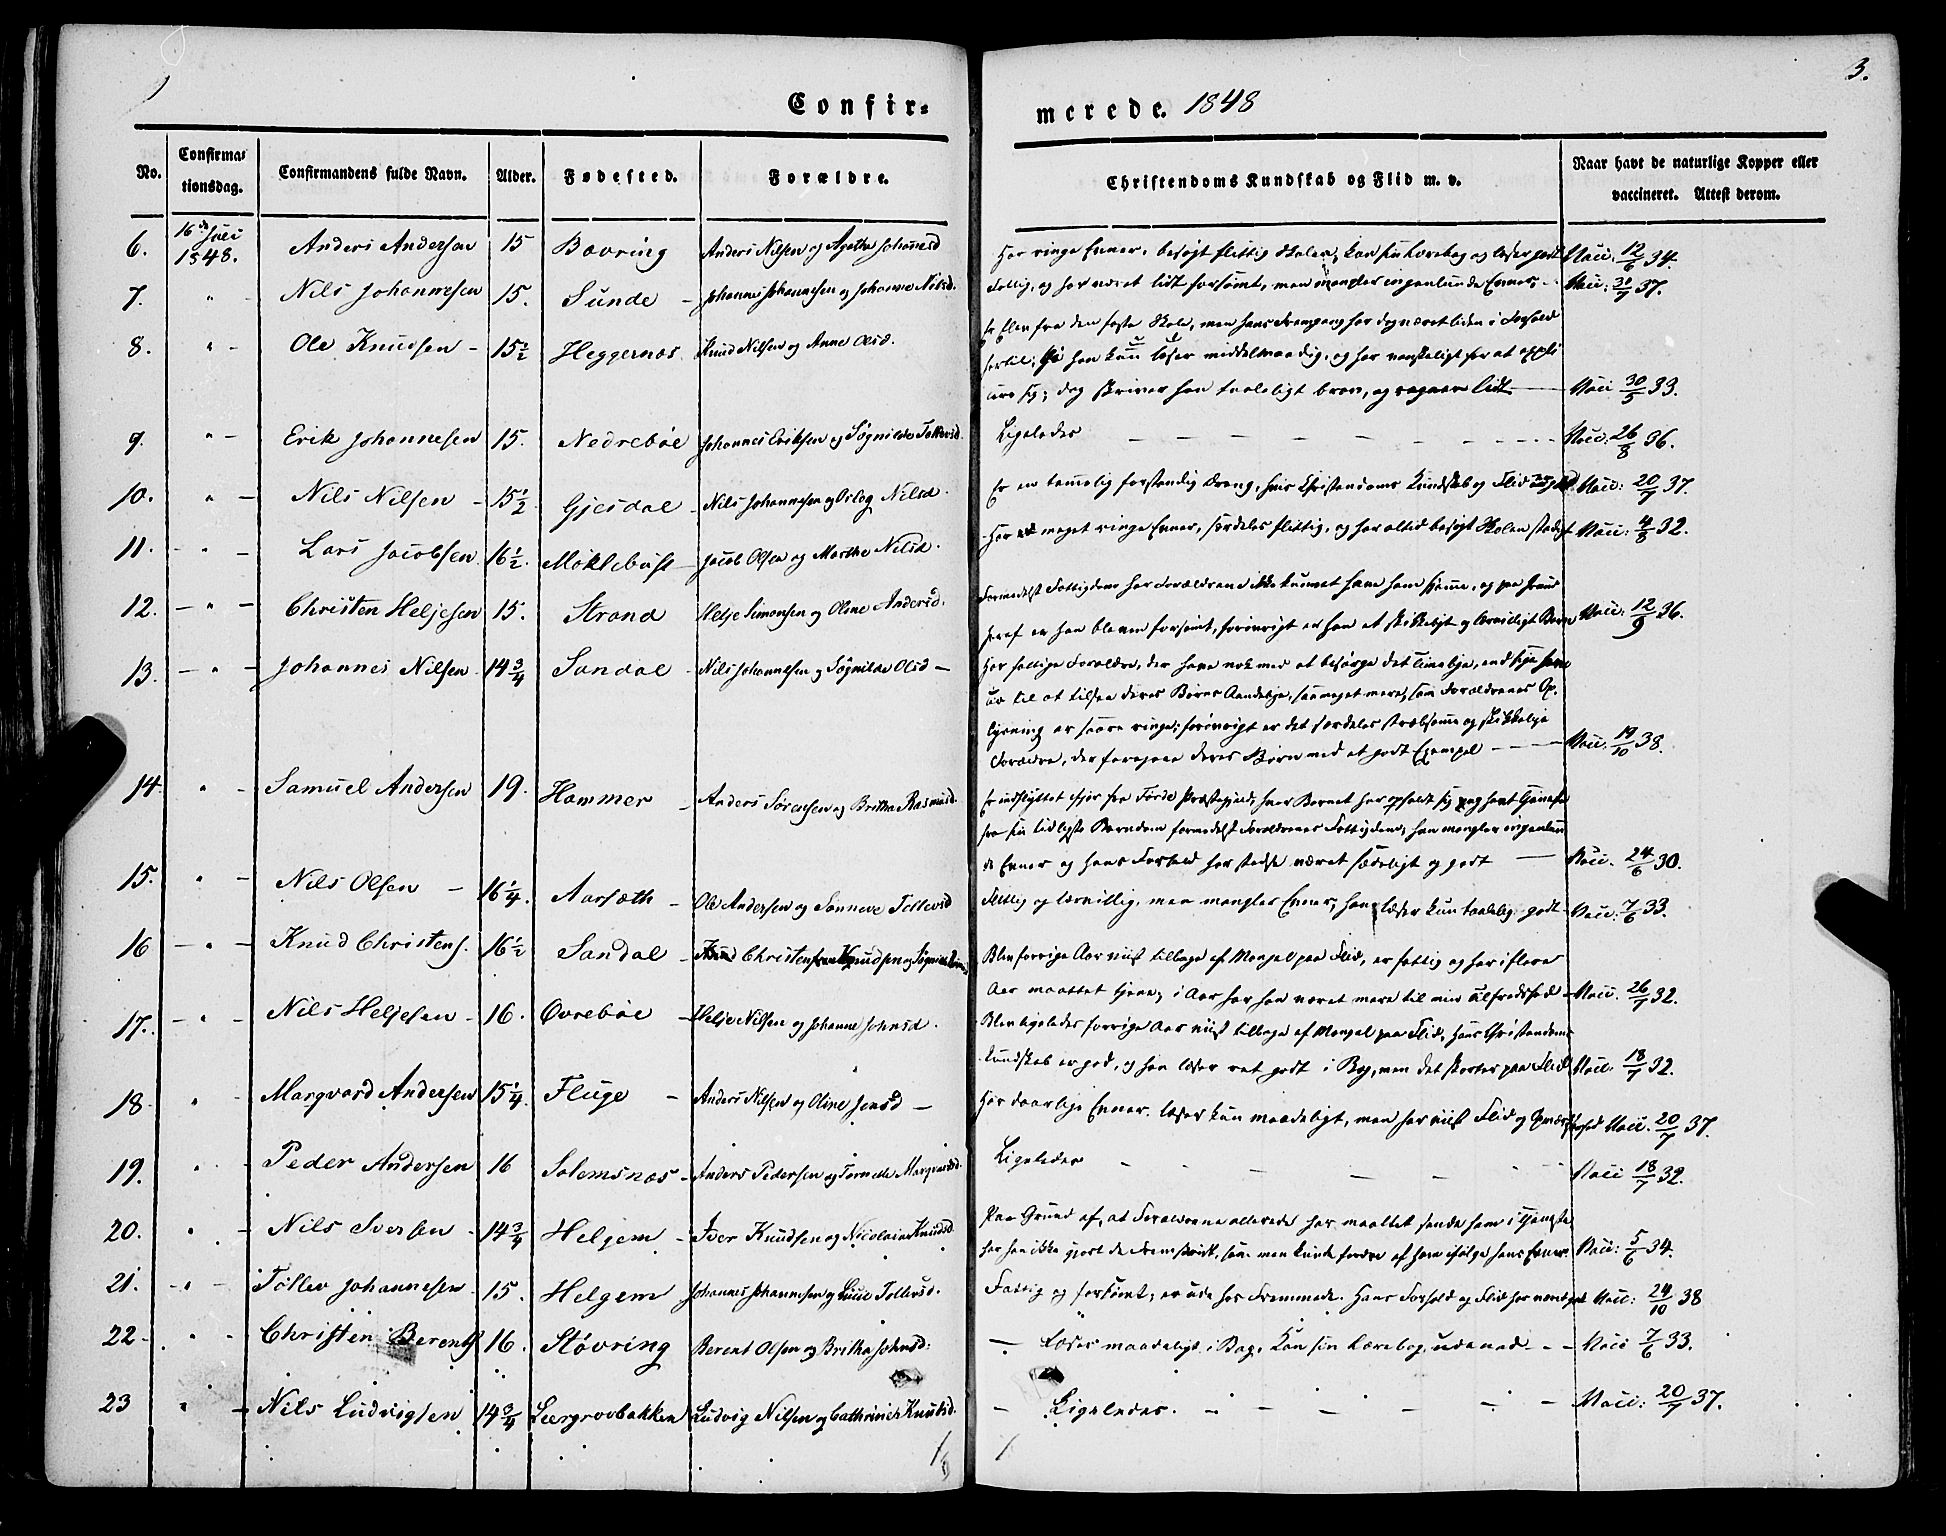 Confir-
merede. 1848
3.
No.
Confirma-
tionsdag.
Confirmandens fulde Navn.
Alder.
Fødested.
Forældre.
Christendoms Kundskab og Flid m. v.
Naar havt de naturlige Kopper eller
vaccineret. Attest derom.
6. 16de Juli 1848. Anders Andersen 15 Bævring Anders Nilsen og Agathe Johannesd Har ringe Evner, besøgt flittig Skolen, kan sin Lærebog og læser godt Vacc. 12/6 34.
7. " - Nils Johannesen 15. Sunde - Johannes Johannesen og Johanne Nilsd. Fattig, og har været lidt forsømt, men mangler ingenlunde Evner, - Vacc: 31/7 37.
8. " - Ole Knudsen - 15 1/2 Heggernæs Knud Nilsen og Anne Olsd. Er Elev fra den faste Skole, men hans Fremgang har dog været liden i Forhold
hertil; thi han kun læser middelmaadig, og har vanskeligt for at
dog skriver han taaleligt brav, og regner lidt Vacc 30/5 33.
9. " - Erik Johannesen 15. Nedrebøe Johannes Eriksen og Søgnilde Tollevsd. Ligeledes - - - - Vacc: 26/8 36.
10. " - Nils Nilsen - 15 1/2 Gjesdal - Nils Johannesen og Oslog Nilsd. Er en temmelig forstandig Dreng, hvis Christendoms Kundskab og Flid Vacc: 20/7 37.
11. - " - Lars Jacobsen 16 1/2. Møklebust - Jacob Olsen og Marthe Nilsd. Har meget ringe Evner, særdeles flittig, og har altid besøgt Skolen stadigt Vacc: 4/8 32.
12. - " - Christen Heljesen 15. Strand Helje Simonsen og Oline Andersd. Formedelst Fattigdom har Forældrene ikke kunnet have ham hjemme, og paa Grund
heraf er han bleven forsømt, forøvrigt er han et skikkeligt og lærvilligt Barn Vacc: 12/9 36.
13. - " - Johannes Nilsen 14 3/4 Sandal - Nils Johannesen og Søgnilde Olsd - Har fattige Forældre, der have nok med at besørge det Timelige, end sige
til at tilsee deres Børns Aandelige, saameget mere, som Forældrenes Op-
lysning er saare ringe; forøvrigt er det særdeles stræbsomme og skikkelige
Forældre, der foregaae deres Børn med et godt Exempel - - - Vacc. 19/10 38.
14. " - Samuel Andersen 19. Hammer - Anders Sørensen og Britha Rasmusd. Er indflyttet ifjor fra Førde Præstegjeld, hvor Barnet har opholdt sig og havt Tjeneste
fra sin tidligste Barndom formedelst Forældrenes Fattigdom; han mangler ingenlun-
de Evner og hans Forhold har stedse været sædeligt og godt - Vacc. 24/6 30.
15. " - Nils Olsen - 16 1/4. Aarsæth - Ole Andersen og Sønneve Tollevsd Flittig og lærvillig, men mangler Evner; han læser kun taalelig godt - Vacc: 7/6 33.
16 - " - Knud Christens. 16 1/2 Sandal - Christen Knudsen og Søgnilde Blev forrige Aar viist tilbage af Mangel paa Flid, er fattig og har i flere
Aar maattet tjene; i Aar har han været mere til min Tilfredshed - Vacc. 26/7 32.
17. - " - Nils Heljesen - 16. Øvrebøe - Helje Nilsen og Johanne Johnsd. Blev ligeledes forrige Aar viist tilbage af Mangel paa Flid, Hans Christendoms
Kundskab er god, og han læser ret godt i Bog, men det skorter paa Flid Vacc. 18/7 32.
18. " - Marqvard Andersen 15 1/4. Fluge - Anders Nilsen og Oline Jensd - Har daarlige Evner. læser kun maadeligt, men har viist Flid og Vacc. 20/7 37.
19. " - Peder Andersen 16 Solemsnæs - Anders Pedersen og Tornille Marqvardsd. Ligeledes - - - - Vacc 18/7 32.
20. " - Nils Iversen - 14 3/4 Helgem - Iver Knudsen og Nicolaine Knudsd. Paa Grund af, at Forældrene allerede har maattet sende ham i Tjeneste,
har han ikke gjort de Fremskridt, som man kunde fordre af ham ifølge hans Evner Vacc: 5/6 34.
21. - " - Tollev Johannesen - 15. Helgem - Johannes Johannesen og Tollevsd. Fattig og forsømt; er ude hos Fremmede. Hans Forhold og Flid har været godt Vacc: 24/10 38
22 - " - Christen Berents 16. Støvring Berent Olsen og Britha Johnsd: - Læser maadeligt i Bog, kan sin Lærebog udenad - - Vacc 7/6 33.
23 " - Nils Ludvigsen 14 3/4 Lærgrovbakken Ludvig Nilsen og Cathrine Knudsd. - Ligeledes. - - - - Vacc: 20/7 37.